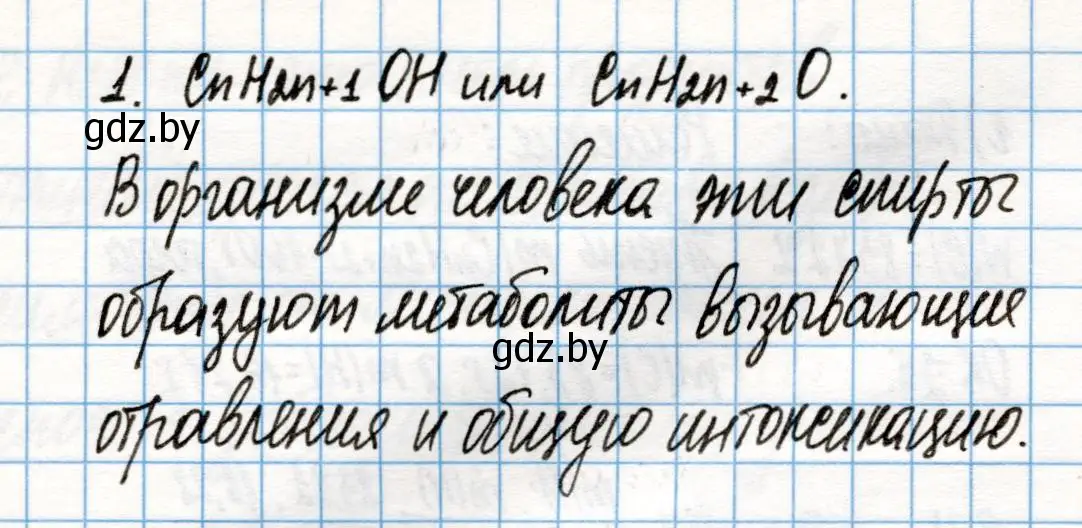 1. CnH2n+1 OH или CnH2n+2 O.
gdz.by
В организме человека эти спирты
образуют метаболиты вызывающие
gdz.by
отравления и общую интоксикацию.